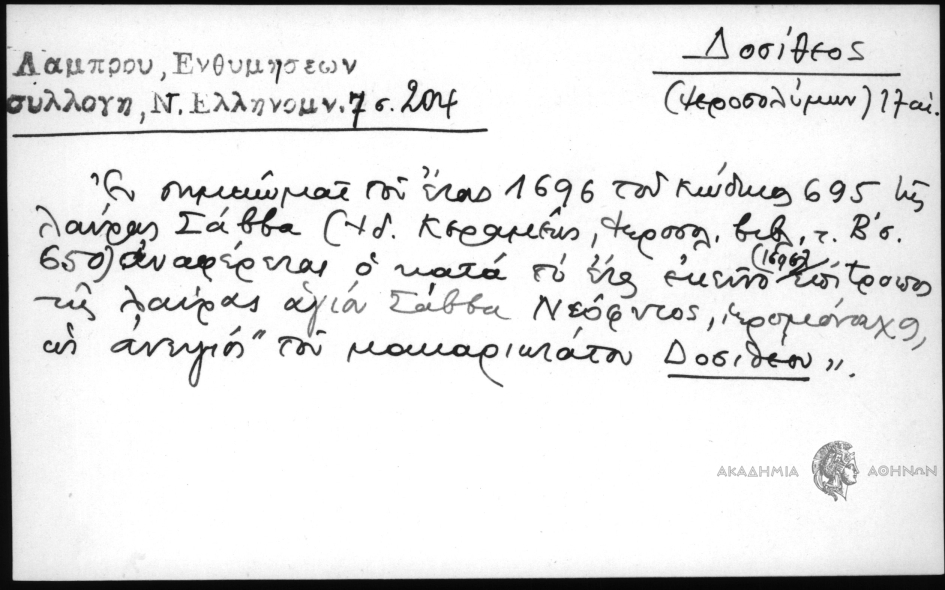 Λαμπρου, Ενθυμησεων
συλλογη, Ν. Ελληνομν. 7 σ. 204
Δοσίθεος
(Ἱεροσολύμων) 17 αἰ.
Ἐν σημειώματι τοῦ ἔτους 1696 τοῦ κώδικος 695 τῆς
λαύρας Σάββα (Πδ. Κεραμεύς, Ἱεροσολ. βιβλ. τ. Β΄ σ.
650) ἀναφέρεται ὁ κατὰ τὸ ἔτος ἐκεῖνο (1696) ἐπίτροπος
τῆς λαύρας ἁγίου Σάββα Νεόφυτος, ἱερομόναχος,
ὡς ἀνεψιός "τοῦ μακαριωτάτου Δοσιθέου".
ΑΚΑΔΗΜΙΑ ΑΘΗΝΩΝ